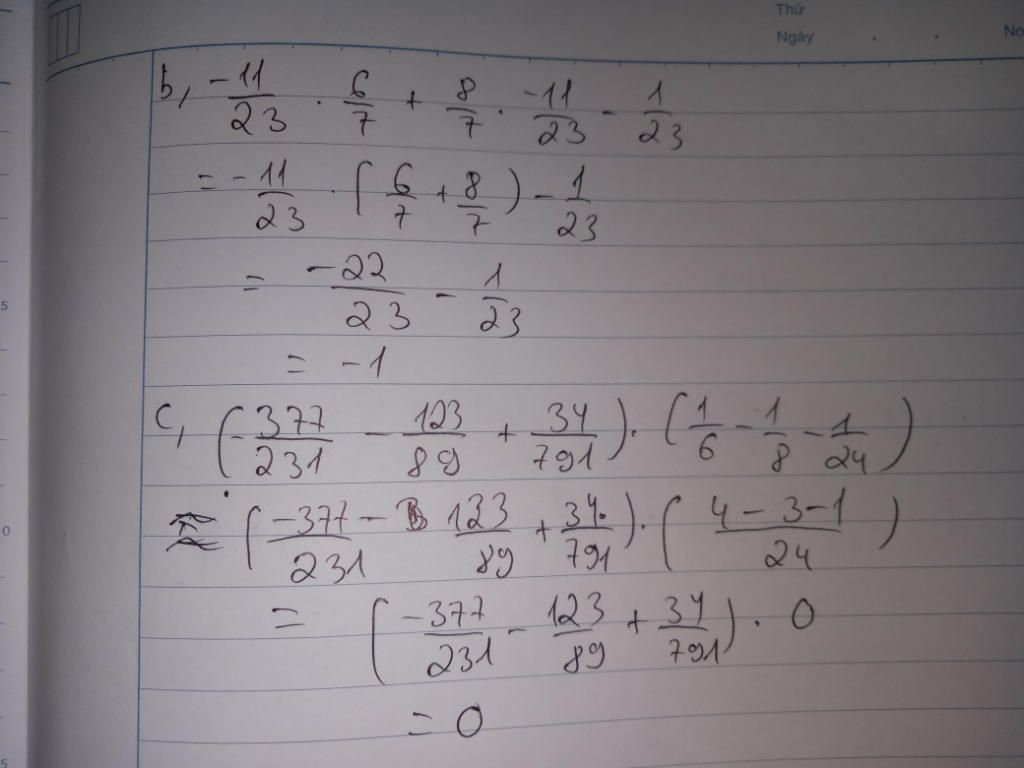 Thứ
Ngày . .
No
b, -11/23 . 6/7 + 8/7 . -11/23 - 1/23
= -11/23 . (6/7 + 8/7) - 1/23
= -22/23 - 1/23
= -1
c, (-377/231 - 123/89 + 34/791) . (1/6 - 1/8 - 1/24)
= (-377/231 - 123/89 + 34/791) . (4 - 3 - 1/24)
= (-377/231 - 123/89 + 34/791) . 0
= 0
5
0
5